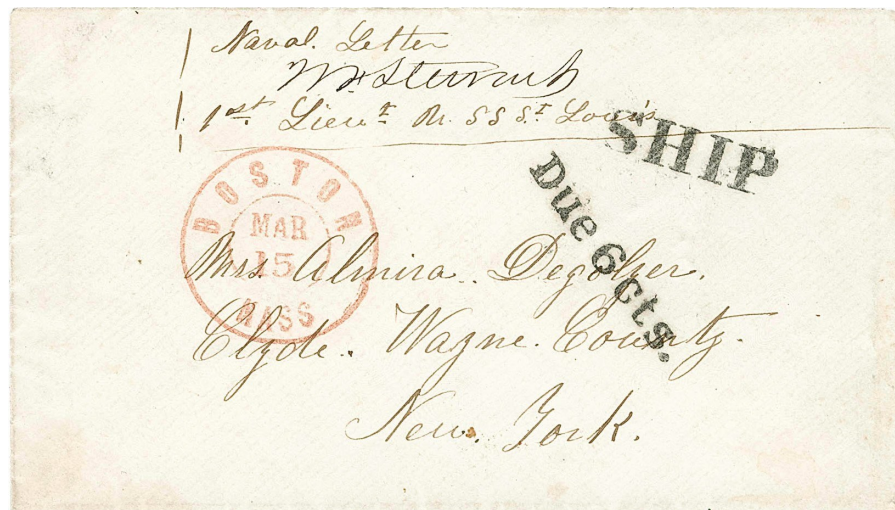 Naval. Letter
1st. Lieut U. S S St Louis
SHIP
Due 6 cts.
BOSTON
MAR
15
MASS
Mrs Almira. Degolyer.
Clyde. Wayne. County.
New. York.